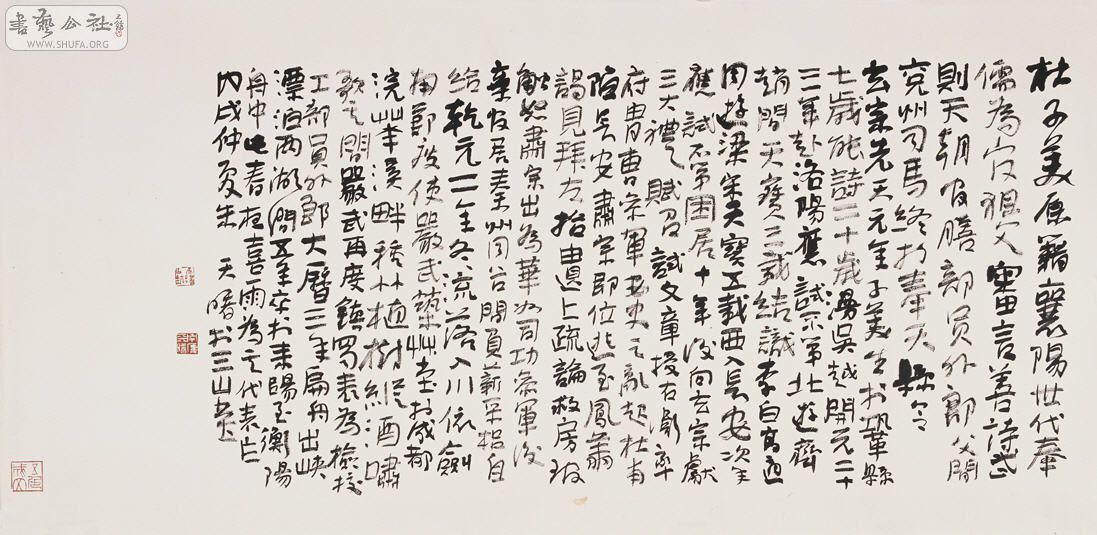 杜子美原籍襄陽世代奉
儒為官祖父審言善詩武
則天朝官膳部員外郎父閑
兗州司馬終於奉天縣令
玄宗先天元年子美生於鞏縣
七歲能詩二十歲漫吳越開元二十
三年赴洛陽應試不第北遊齊
趙間天寶三載結識李白高適
同遊梁宋天寶五載西入長安次年
應試不第困居十年後向玄宗獻
三大禮賦召試文章授右衛率
府冑曹參軍安史之亂起杜甫
陷長安肅宗即位逃至鳳翔
謁見拜左拾遺上疏論救房琯
觸怒肅宗出為華州司功參軍後
棄官居秦州同谷間負薪采梠自
給乾元二年冬流落入川依劍
南節度使嚴武築草堂於成都
浣花溪畔種竹植樹縱酒嘯
歌其間嚴武再度鎮蜀表為檢校
工部員外郎大曆三年扁舟出峽
漂泊兩湖間五年卒於耒陽至衡陽
舟中也春夜喜雨為其代表作
丙戌仲夏朱天曙於三山堂
書藝公社
WWW.SHUFA.ORG